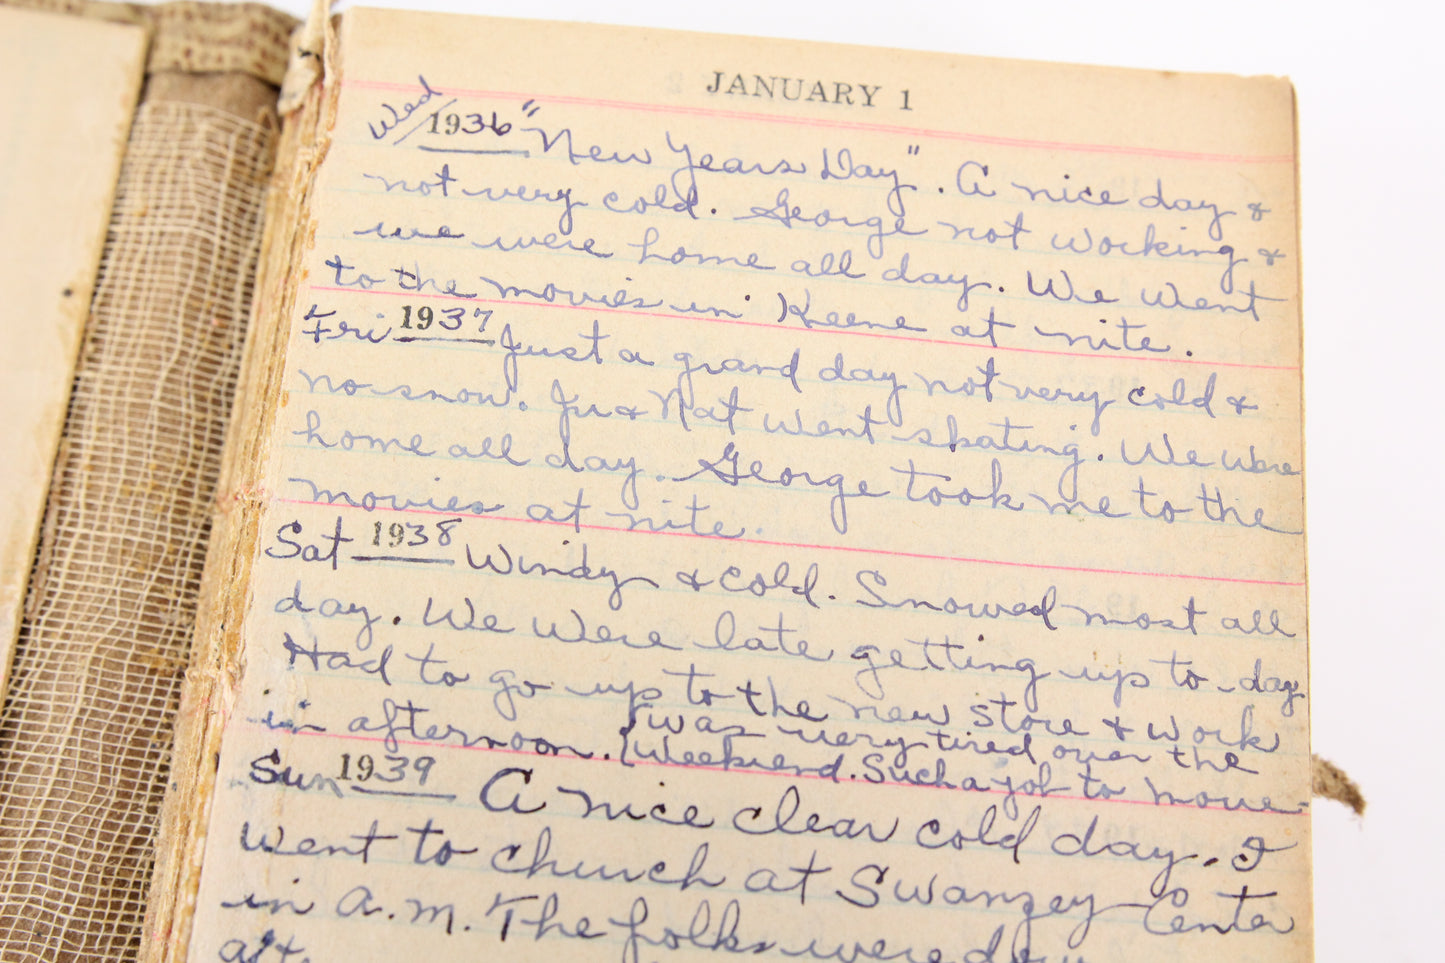 JANUARY 1
Wed 1936 "New Years Day". A nice day &
not very cold. George not working &
we were home all day. We went
to the movies in Keene at nite.
Fri 1937 Just a grand day not very cold &
no snow. Ju & Nat went skating. We were
home all day. George took me to the
movies at nite.
Sat 1938 Windy & cold. Snowed most all
day. We were late getting up to-day
Had to go up to the new store & work
in afternoon. was very tired over the
Weekend. Such a job to move-
Sun 1939 A nice clear cold day. I
went to church at Swanzey Center
in A.M. The folks were down
aft.